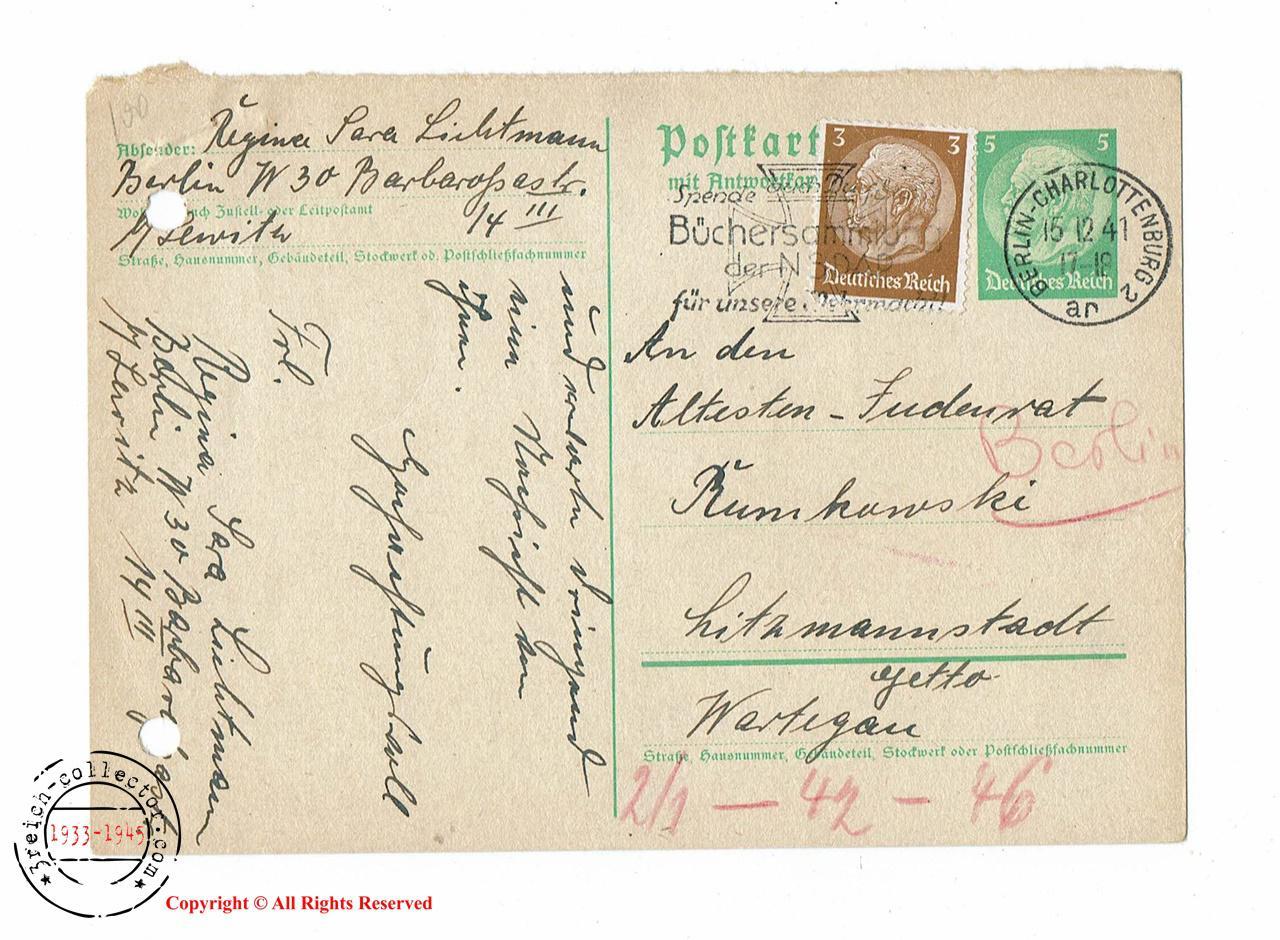 100
Regina Sara Lichtmann
Absender:
Berlin W 30 Barbarossastr.
Wohnort, auch Zustell- oder Leitpostamt
14 III
b/ Lewitz
Straße, Hausnummer, Gebäudeteil, Stockwerk od. Postschließfachnummer
und erwarte dringend
eine Nachricht von
Ihnen.
Hochachtungsvoll
Frl.
Regina Sara Lichtmann
Berlin W 30
b/ Lewitz 14 III
Postkart
mit Antwortkar
3 3
Deutsches Reich
5 5
Deutsches Reich
Spende
Büchersammlung
der NSDAP
für unsere Wehrmacht
BERLIN-CHARLOTTENBURG 2
15 12 41
17-18
an
An den
Ältesten - Judenrat
Berlin
Rumkowski
Litzmannstadt
Getto
Wartegau
Straße, Hausnummer, Gebäudeteil, Stockwerk oder Postschließfachnummer
2/1 - 42 - 46
3reich-collector.com
1933-1945
Copyright © All Rights Reserved